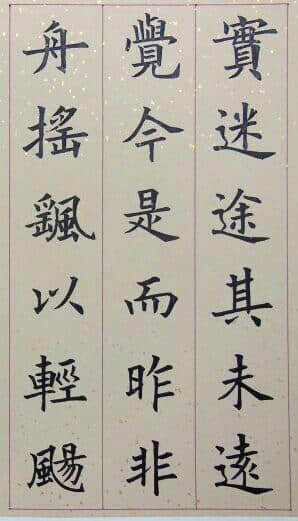 實迷途其未遠
覺今是而昨非
舟搖颻以輕颺